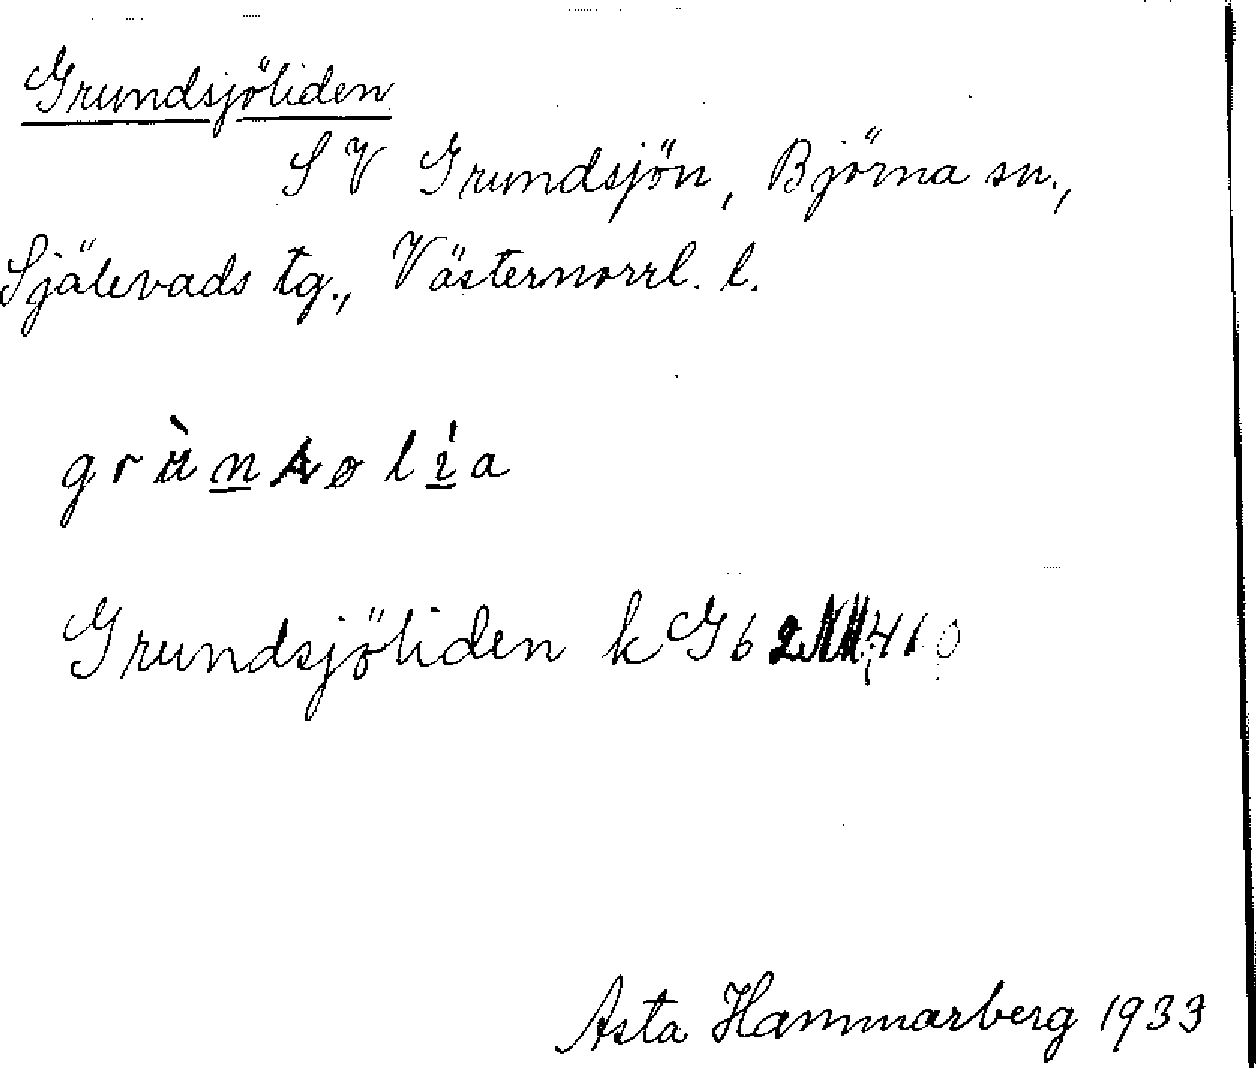 Grundsjöliden
S V Grundsjön, Björna sn.,
Själevads tg., Västernorrl. l.
Grundsjöliden k G6
Asta Hammarberg 1933